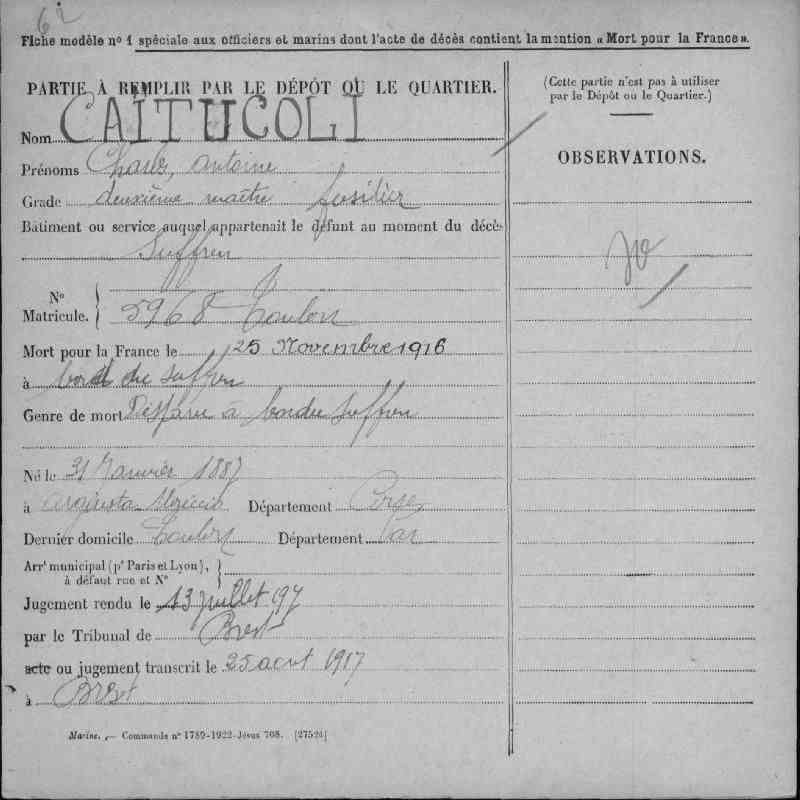 62
Fiche modèle nº 1 spéciale aux officiers et marins dont l'acte de décès contient la mention « Mort pour la France ».
PARTIE À REMPLIR PAR LE DÉPÔT OU LE QUARTIER.
Nom CAITUCOLI
Prénoms Charles, Antoine
Grade deuxième maître fusilier
Bâtiment ou service auquel appartenait le défunt au moment du décès
Suffren
Nº Matricule. 5968 Toulon
Mort pour la France le 25 Novembre 1916
à bord du Suffren
Genre de mort Disparu à bord du Suffren
Né le 31 Janvier 1887
à Argiusta Moriccio Département Corse
Dernier domicile Toulon Département Var
Arrt municipal (pr Paris et Lyon),
à défaut rue et Nº
Jugement rendu le 13 juillet 1917
par le Tribunal de Brest
acte ou jugement transcrit le 25 aout 1917
à Brest
Marine. — Commande nº 1789-1922-Jésus 708. [27524]
(Cette partie n'est pas à utiliser
par le Dépôt ou le Quartier.)
OBSERVATIONS.